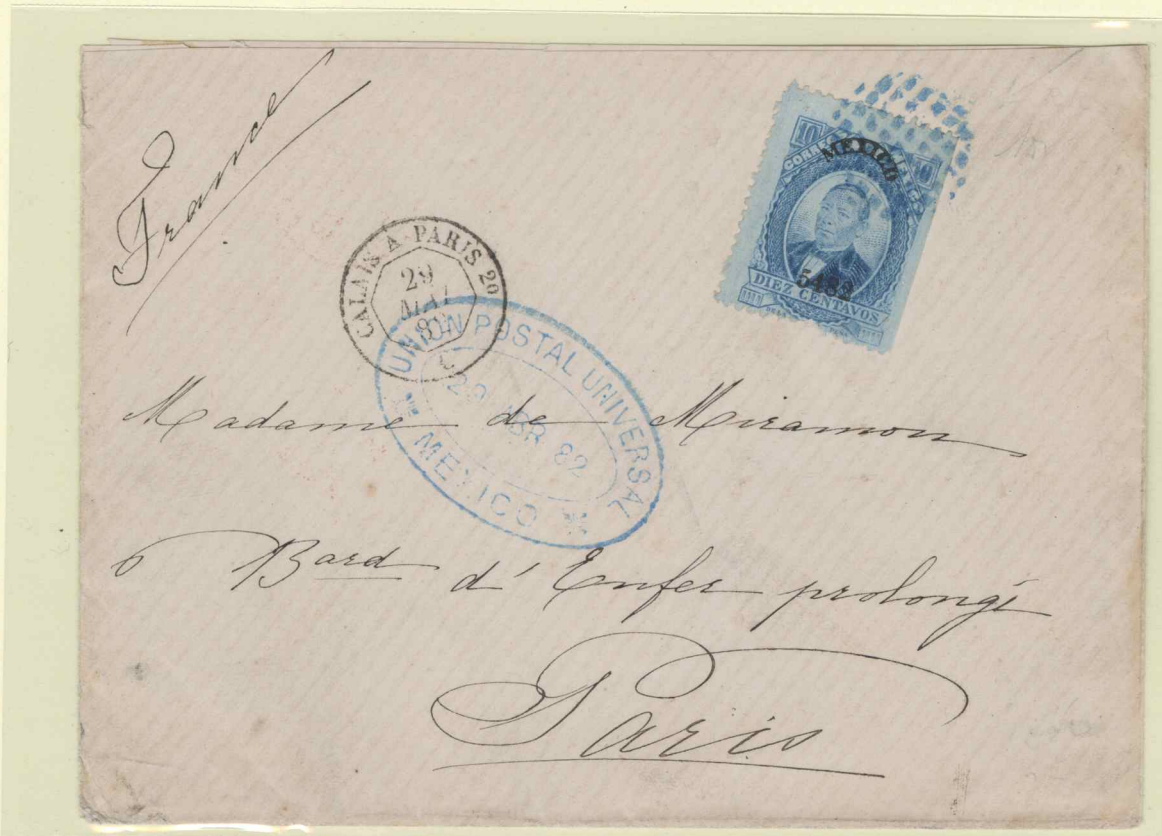 France
10 10
MEXICO
5482
DIEZ CENTAVOS
CALAIS A PARIS 20
29
MAI
82
UNION POSTAL UNIVERSAL
29 ABR 82
MEXICO
Madame de Miramon
6 Bard d'Enfer prolongé
Paris